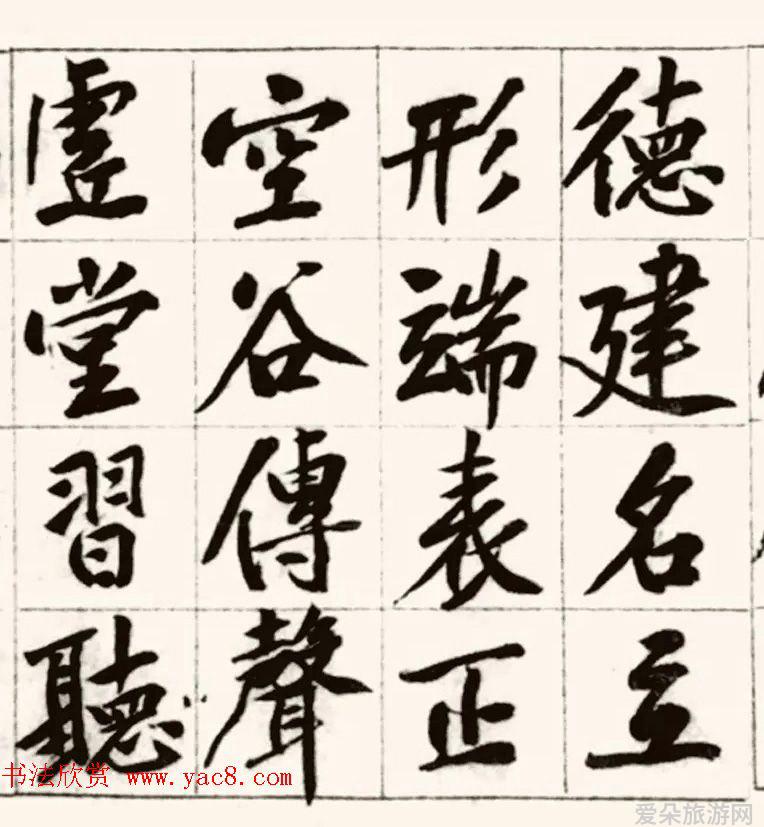 德建名立
形端表正
空谷傳聲
虛堂習聽
书法欣赏 www.yac8.com
爱朵旅游网